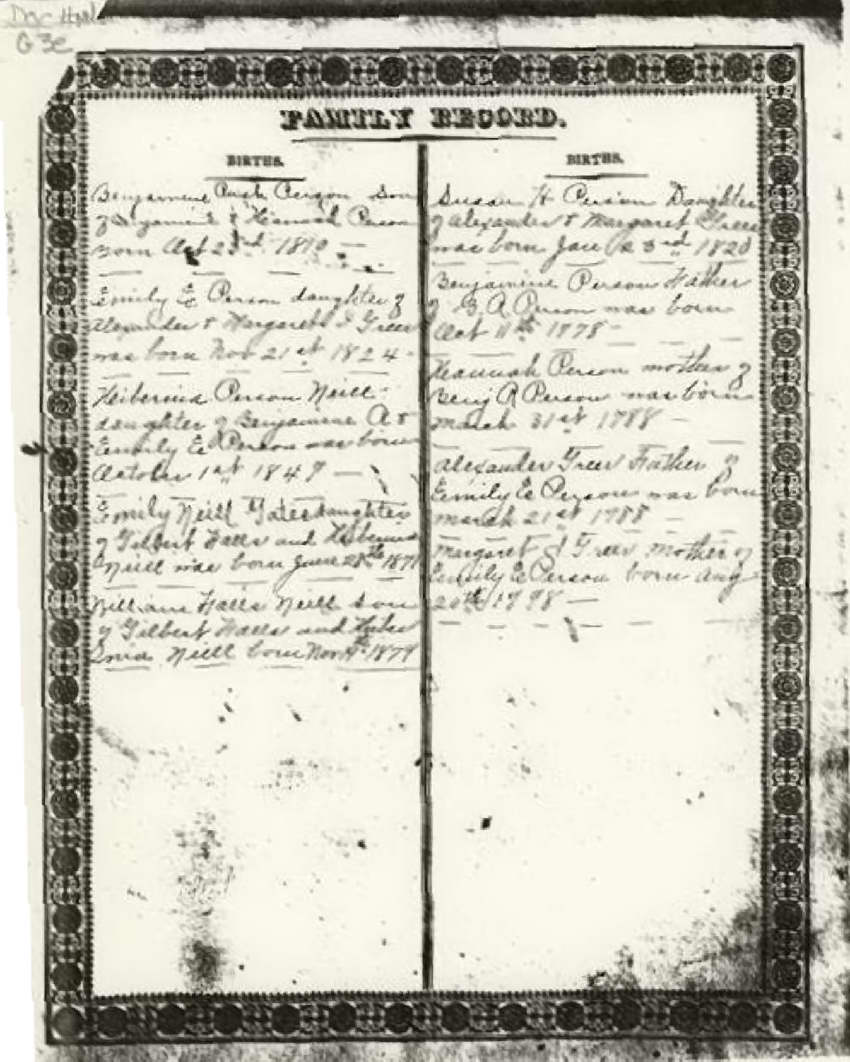 Doc
G 3e
FAMILY RECORD.
BIRTHS.
Benjamine Person Son
of Benjamine & Hannah Person
Born Oct 23rd
Emily E Person daughter of
Alexander & Margaret J Greer
was born Nov 21st 1824
Heiberina Person Neill
daughter of Benjamine A &
Emily E Person was born
October 1st 1849
Emily Neill Yates daughter
of Gilbert Falls and Heiberina
Neill was born June 28th
William Falls Neill Son
of Gilbert Falls and Heiber
inia Neill born Nov 1879
BIRTHS.
Susan H Person Daughter
of Alexander & Margaret Greer
was born Jan 23rd
Benjamine Person Father
of B. A Person was born
Oct 11th 1878
Hannah Person mother of
Benj A Person was born
March 31st 1788
Alexander Greer Father of
Emily E Person was born
March 21st 1788
Margaret J Greer mother of
Emily E Person born Aug
20th 1798